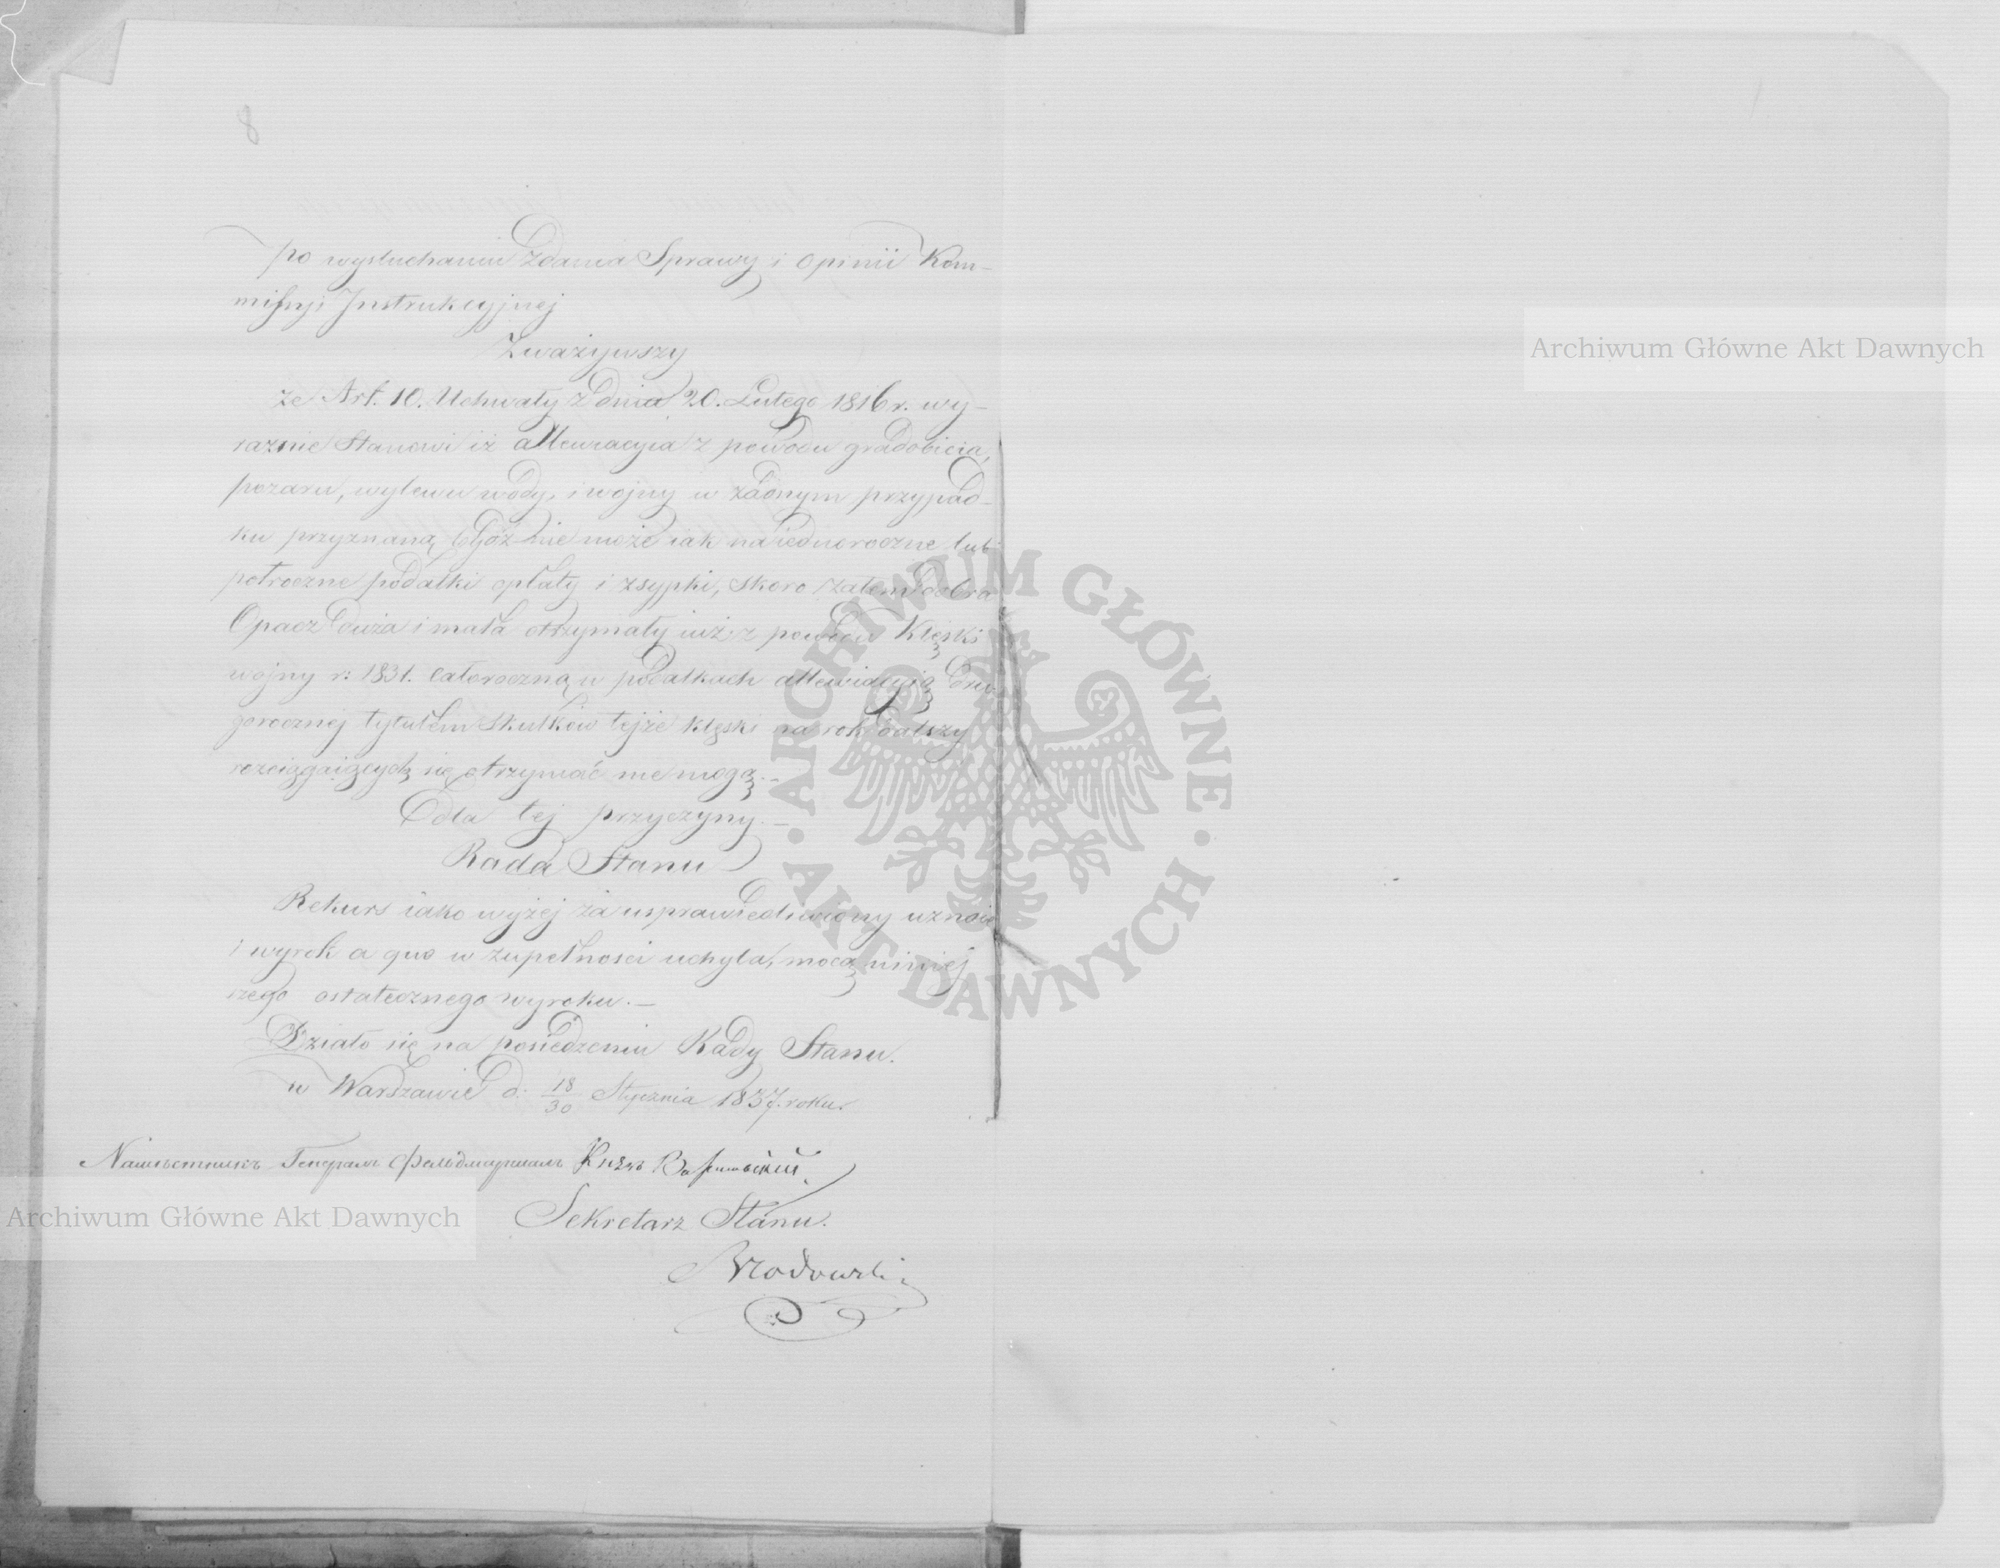 8
po wysłuchaniu Zdania Sprawy i Opinii Kom-
missyi Instrukcyjnej
Zważywszy
że Art. 10. Uchwały z dnia 20. Lutego 1816 r. wy-
raźnie Stanowi iż allewiacyia z powodu gradobicia,
pożaru, wylewu wody, i wojny w żadnym przypad-
ku przyznaną bydź nie może iak na iednoroczne lub
półroczne podatki opłaty i zsypki, skoro zatem dobra
Opacz duża i mała otrzymały iuż z powodu Klęski
wojny r: 1831. całoroczną w podatkach allewiacyią dru-
gorocznéj tytułem Skutków tejże klęski na rok dalszy
rozciągaiących się otrzymać nie mogą.-
Dla tej przyczyny.-
Rada Stanu
Rekurs iako wyżej za usprawiedliwiony uznaie
i wyrok a quo w zupełności uchyla, mocą niniej
szego ostatecznego wyroku.-
Działo się na posiedzeniu Rady Stanu.
w Warszawie d: 18/30 Stycznia 1837. roku.
Намѣстникъ Генералъ Фельдмаршалъ Князь Варшавскій
Sekretarz Stanu.
Brodowski
ARCHIWUM GŁÓWNE
AKT DAWNYCH
Archiwum Główne Akt Dawnych
Archiwum Główne Akt Dawnych